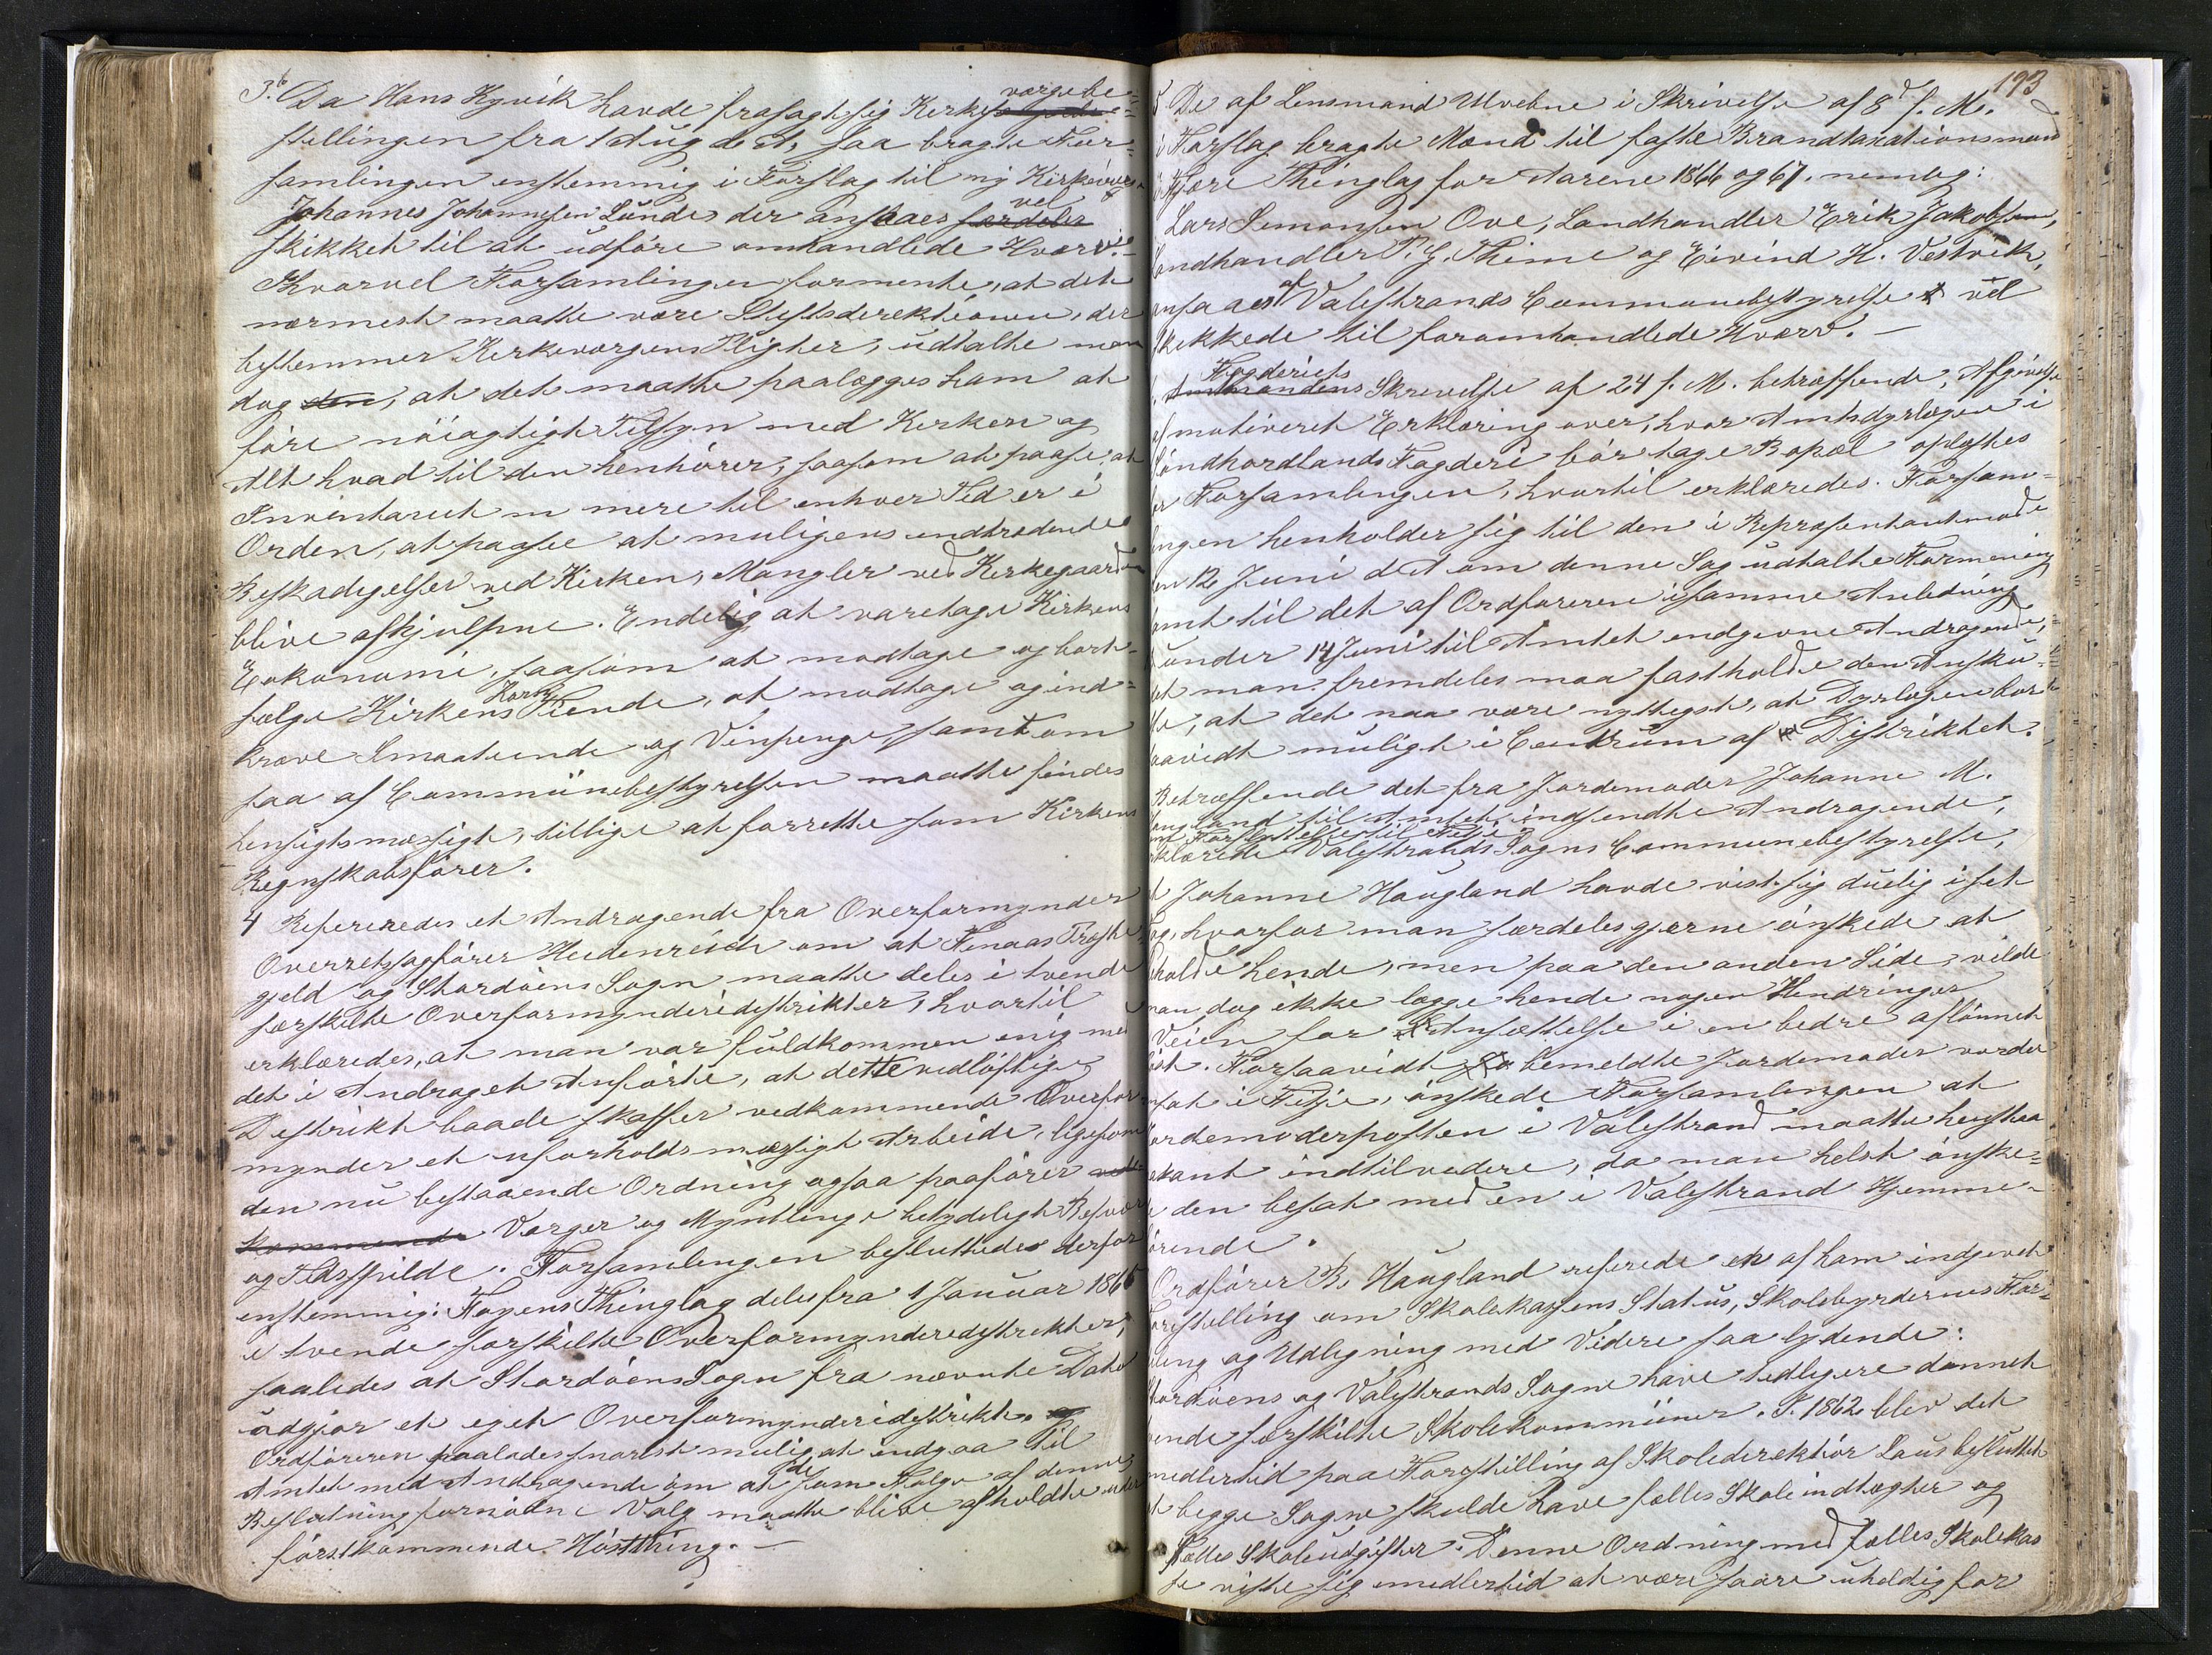 3. Da Hans Hyvik havde frasagt sig Kirkeværgebe=
stillingen fra 1 Aug d. A, saa bragte For=
samlingen enstemmig i Forslag til ny Kirkeværge
Johannes Johannesen Lunde, der ansaaes særdeles vel
skikket til at udføre omhandlede Hværv.-
Hvorvel Forsamlingen formente, at det
nærmest maatte være Stiftsdirektionen, der
bestemmer Kirkeværgens Pligter, udtalte man
dog den, at det maatte paalægges ham at
føre nøiagtigt Tilsyn med Kirken og
Alt hvad til den henhører, saasom at paase, at
Inventariet m mere til enhver Tid er i
Orden, at paasee at muligens indtrædende
Beskadigelser ved Kirken, Mangler ved Kirkegaarden
blive afhjulpne. Endelig at varetage Kirkens
Eokonomi, saasom at modtage og bort-
sælge Kirkens Korn Tiende, at modtage og ind=
kræve Smaatiende og Vinpenge, samt om
saa af Communebestyrelsen maatte findes
hensigtsmæsigt, tillige at forrette som Kirkens
Regnskabsfører.
4 Refereredes et Andragende fra Overformynder
Overretssagfører Heidenreich om at Finaas Præste
gjeld og Stordøens Sogn maatte deles i tvende
særskilte Overformynderidistrikter, hvortil
erklæredes, at man var fuldkommen enig med
det i Andraget Anførte, at dette vidløftige
Distrikt baade skaffer vedkommende Overfor
mynder et uforholdsmæsigt Arbeide, ligesom
den nu bestaaende Ordning ogsaa paafører ved
kommende Værger og Myndlinge betydeligt Besvær
og Tidsspilde. Forsamlingen besluttedes derfor
enstemmig: Føyens Thinglag deles fra 1 Januar 1866
i tvende særskilte Overformynderidistrikter,
saaledes at Stordøens Sogn fra nævnte Dato
udgjør et eget Overformynderidistrikt.
Ordføreren paalades snarest mulig at indgaa til
Amtet med Andragende om at de som Følge af denne
Beslutning fornødne Valg maatte blive afholdte under
førstkommende Høstthing.-
193
5 De af Lensmand Urebne i Skrivelse af 8d f. M.
i Forslag bragte Mænd til faste Brandtaxationsmænd
i Fjære Thinglag for Aarene 1866 og 67. nemlig:
Lars Simonsen Ove, Landhandler Erik Jakobsen,
Landhandler P. G. Thime og Eivind H. Vestvik,
ansaaes af Valestrands Communebestyrelse vel
skikkede til foromhandlede Hværv.-
Fogderiets
Amtmandens Skrivelse af 24 f. M. betræffende, Afgivelse
af motiveret Erklæring over, hvor Amtsdyrlægen i
Søndhordlands Fogderi bør tage Bopæl oplæstes
for Forsamlingen, hvortil erklæredes. Forsam=
lingen henholder sig til den i Repræsentantmøde
den 12 Juni d A om denne Sag udtalte Formening
samt til det af Ordføreren i samme Anledning
under 14 Juni til Amtet indgivne Andragende,
at man fremdeles maa fastholde den Ansku=
else, at det maa være nyttigst, at Dyrlægen bor
saavidt muligt i Centrum af Distriktet.
Betræffende det fra Jordemoder Johanne M.
Haugland til Amtet indsendte Andragende,
om Forflyttelse til Fitje
erklærede Valestrands Sogns Communebestyrelse,
at Johanne Haugland havde vist sig duelig i sit
Fag, hvorfor man særdeles gjerne ønskede at
beholde hende, men paa den anden Side, vilde
man dog ikke lægge hende nogen Hindringer
i Veien for Ansættelse i en bedre aflønnet
Post. Forsaavidt bemeldte Jordemoder vorder
ansat i Fitje, ønskede Forsamlingen at
Jordemoderposten i Valestrand maatte henstaa
vakant indtilvidere, da man helst ønske=
de den besat med en i Valestrand Hjemme-
hørende.
Ordfører B. Haugland referede en af ham indgivet
Forestilling om Skolekassens Status, Skolebyrdernes For=
deling og Udligning med Videre saa lydende:
Stordøens og Valestrands Sogne have tidligere dannet
tvende særskilte Skolekommüner. I 1862 blev det
imidlertid paa Forestilling af Skoledirektør Laus besluttet
at begge Sogne skulde have fælles Skoleindtægter og
fælles Skoleudgifter. Denne Ordning med fælles Skolekas
se viste sig imidlertid at være saare uheldig for